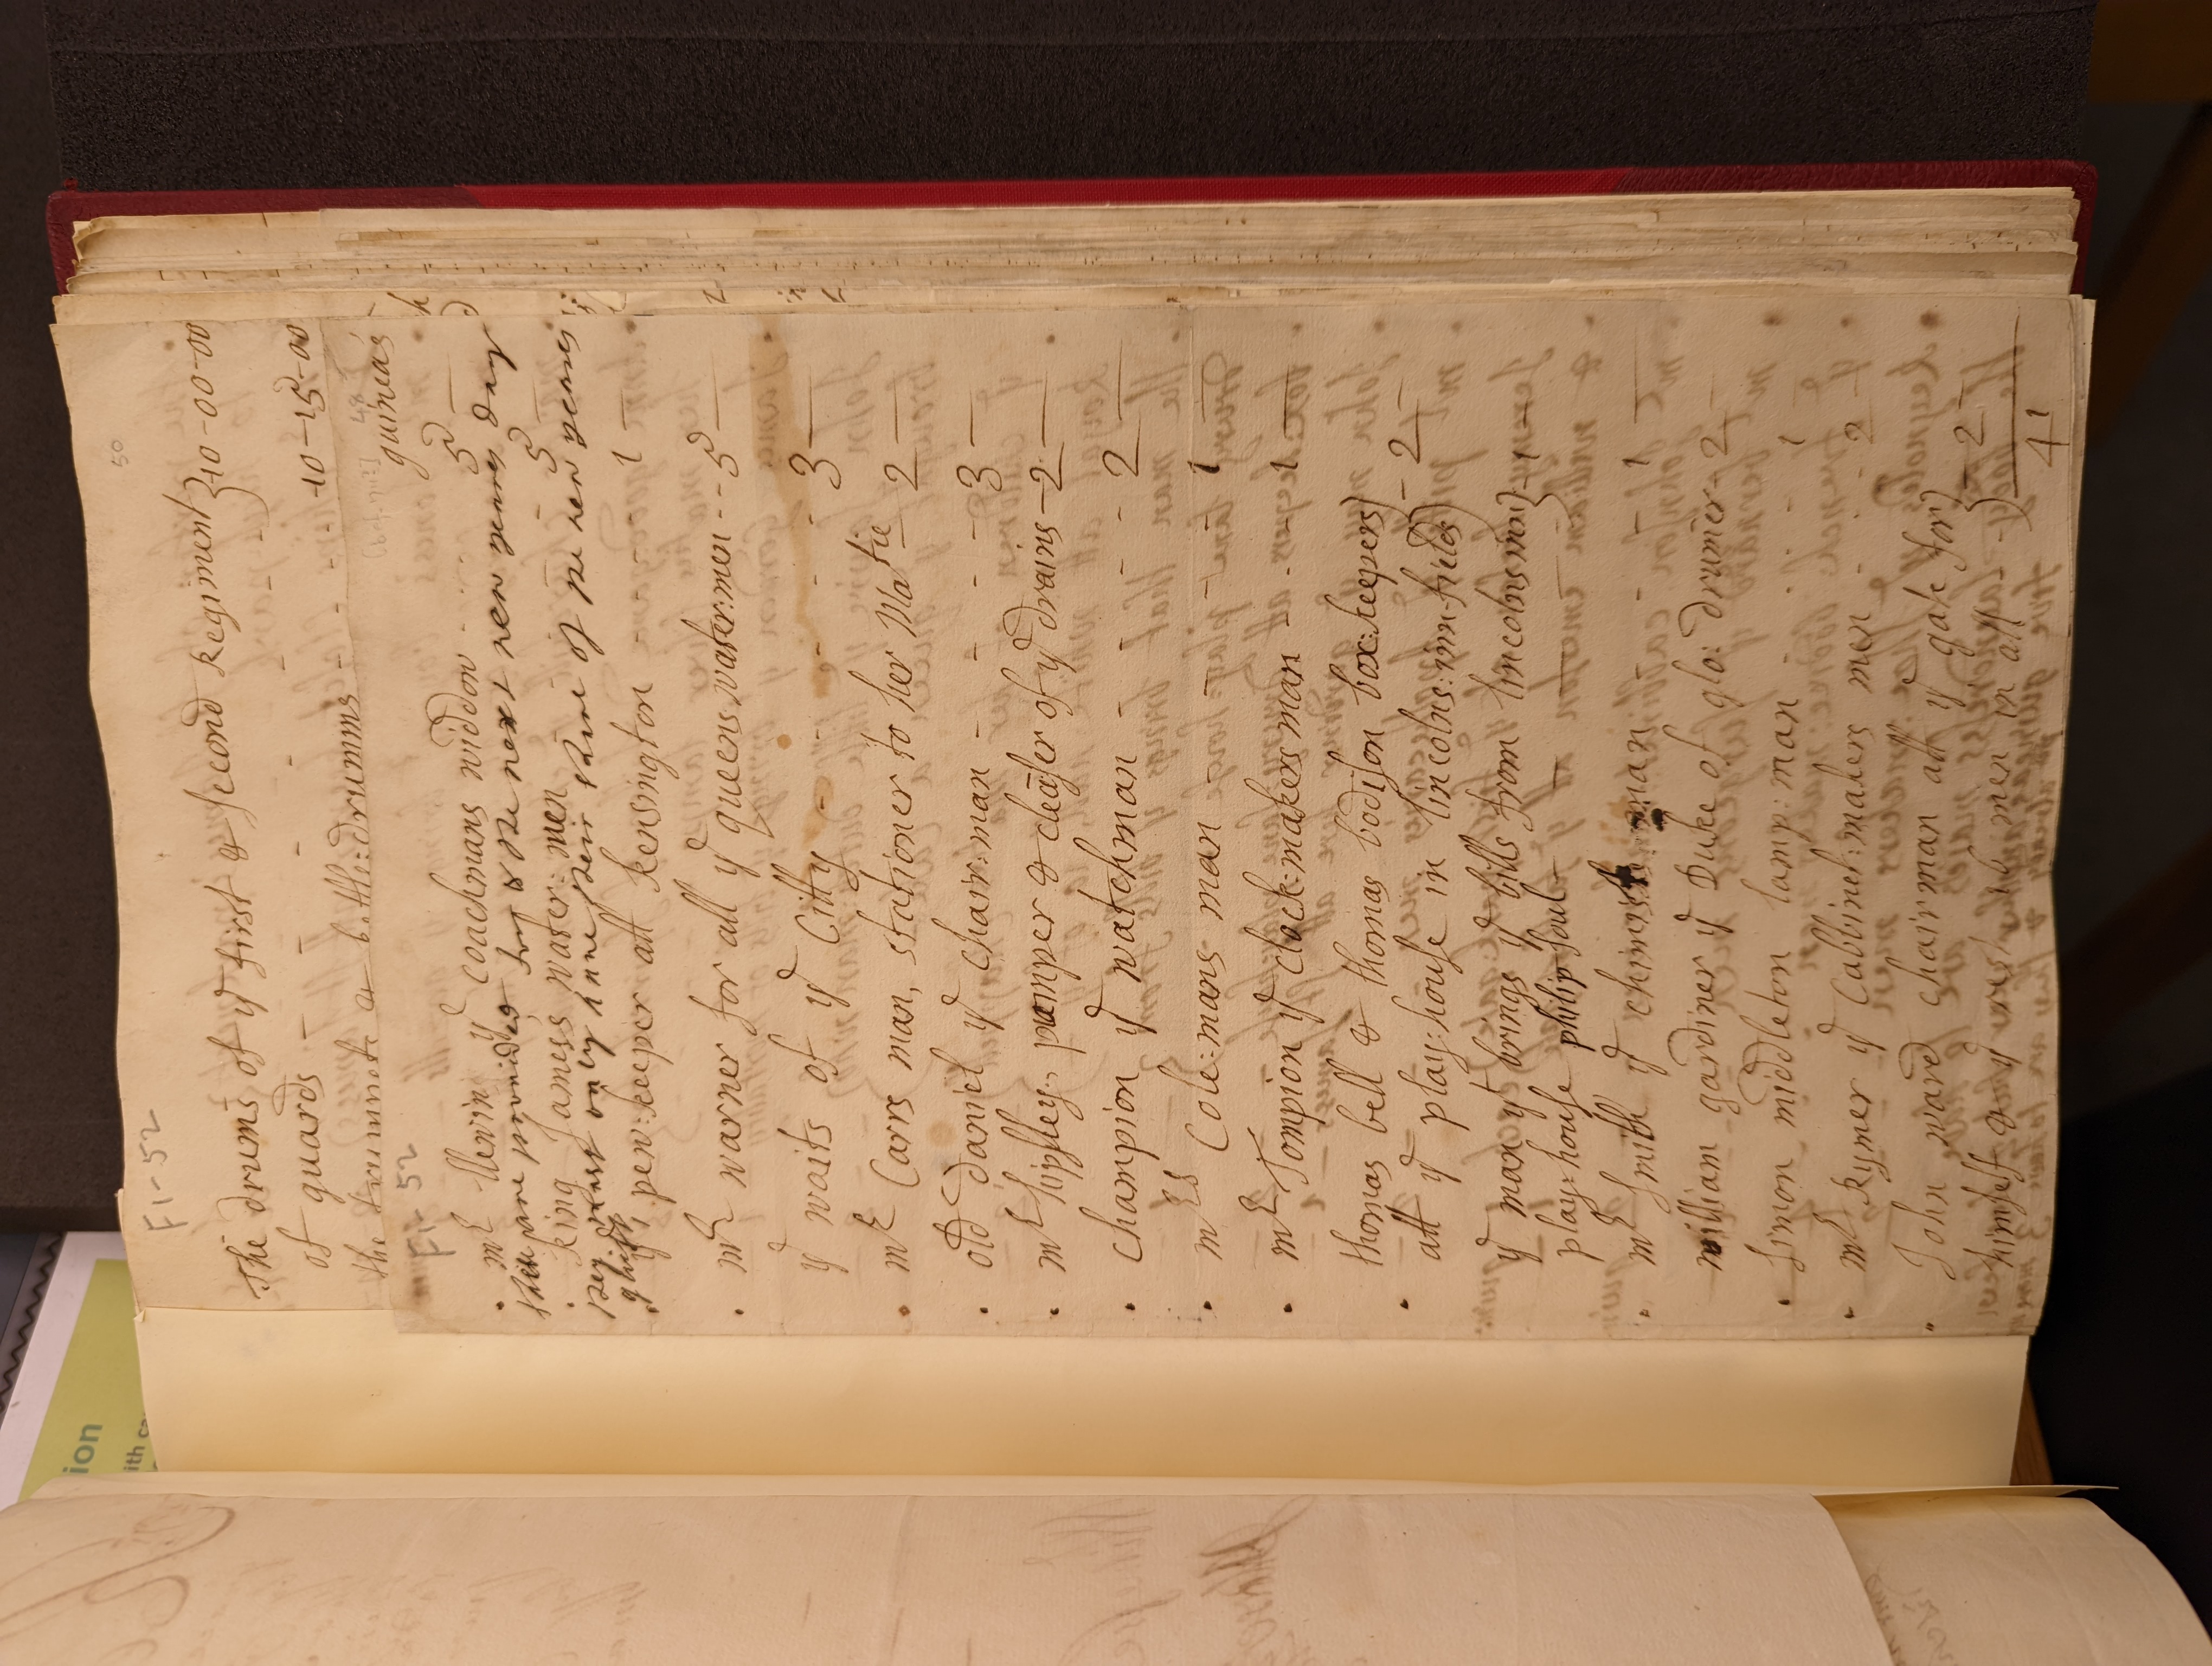 50
F1-52
The drums of yᵉ first & second Regiment} 10-00-00
of guards - - - - - - 10-15-00
the trumpets & kettle:drumms - - -
F1-52
guineas
mʳ Merin yᵉ coachmans widdow - - - 5 —
shee were provided for & the next new years day
king Jameses water:men - - 5
were only have their share of the new yeares
gift
yᵉ pew:keeper att kensington - - 1 —
mʳ warner for all yᵉ queens water:men - - - 5 —
yᵉ waits of yᵉ Citty - - - - - 3 —
mʳ Carrs man, stationer to her Maᵗⁱᵉ 2 —
old Daniel yᵉ chair:man - - - - 3 —
mʳ hippsley, pumper & cleaser of yᵉ drains - 2 —
Champion yᵉ watchman - - - - 2 —
mʳˢ Cole:mans man - - - - - 1 —
mʳ Tompion yᵉ clock:makers man - - - 1 —
thomas bell & thomas bodison box:keepers)
att yᵉ play:house in lincolns:inn-fields) - 2 —
yᵉ man yᵗ brings yᵉ bills from lincolns inn)
play:house philip soul — — } - 1 —
mʳ smith yᵉ chemists man - - - 1 —
william gardiner yᵉ Duke of glo: drumer - 2 —
simon middleton lamp:man - - - 1
mʳ Rymer yᵉ Cabbinet:makers men - - - 2 —
John ward chairman att yᵉ gate for)
himself & yᵉ rest, 16 men in all - - } - 2 —
41
ion
ith